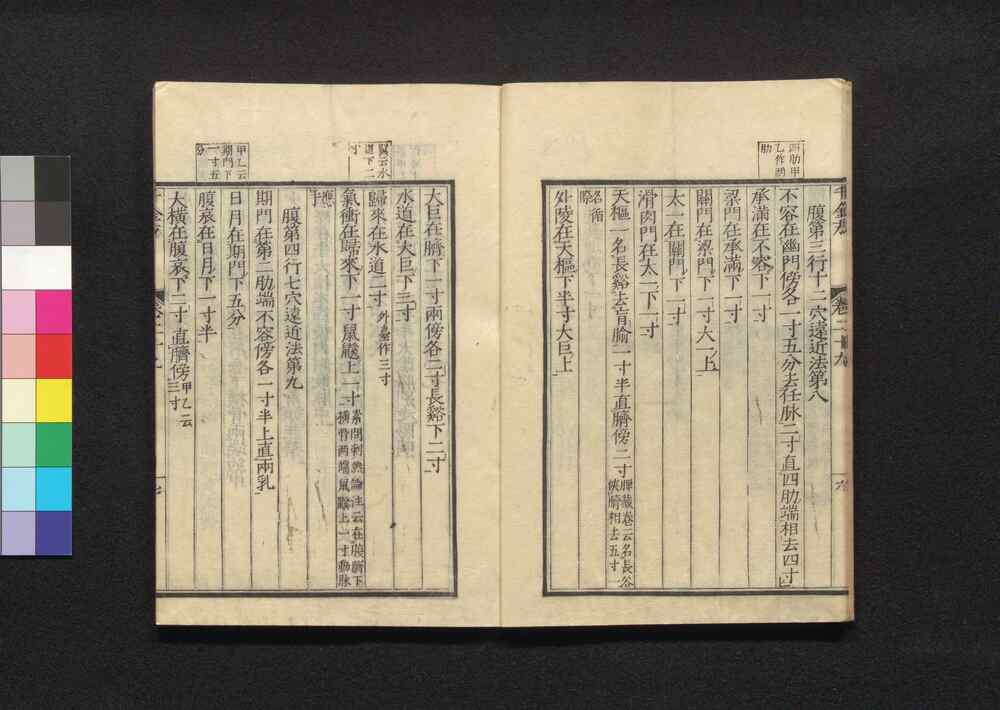 四肋甲
乙作胡
肋
千金方
卷二十九
腹第三行十二穴遠近法第八
不容在幽門傍各一寸五分去任脉二寸直四肋端相去四寸
承滿在不容下一寸
梁門在承滿下一寸
關門在梁門下一寸大一上
太一在關門下一寸
滑肉門在太一下一寸
天樞一名長谿去肓腧一寸半直臍傍二寸脾藏卷云名長谷
俠臍相去五寸一
名循
際
外陵在天樞下半寸大巨上
翼云水
道下二
寸
甲乙云
期門下
一寸五
分
大巨在臍下一寸兩傍各二寸長谿下二寸
水道在大巨下三寸
歸來在水道二寸外臺作三寸
氣衝在歸來下一寸鼠鼷上一寸素問刺熱論注云在腹臍下
橫骨兩端鼠鼷上一寸動脉
應
手
腹第四行七穴遠近法第九
期門在第二肋端不容傍各一寸半上直兩乳
日月在期門下五分
腹哀在日月下一寸半
大橫在腹哀下二寸直臍傍甲乙云
三寸